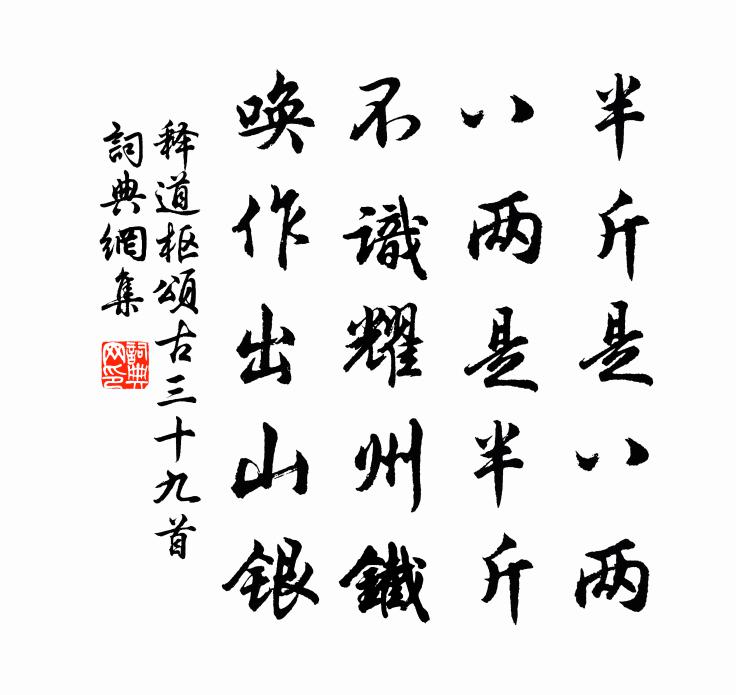 半斤是八两
八两是半斤
不識耀州鐵
喚作出山銀
释道枢頌古三十九首
詞典網集
詞典网印